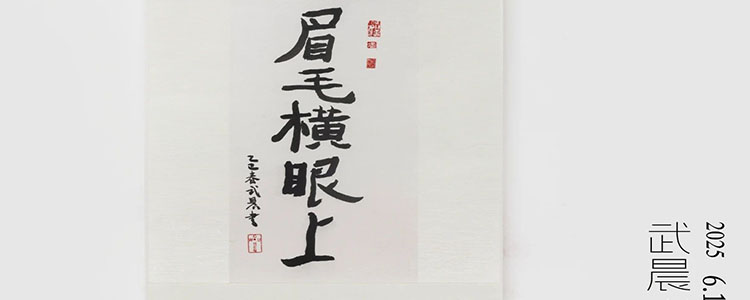 眉毛橫眼上
乙巳春武晨書
武晨
2025 6.1